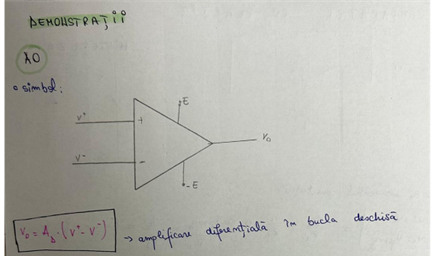 DEMONSTRAȚII
AO
simbol:
E
V⁺
+
V₀
V⁻
-
-E
V₀ = A_Δ · (V⁺ - V⁻) → amplificare diferențială în bucla deschisă